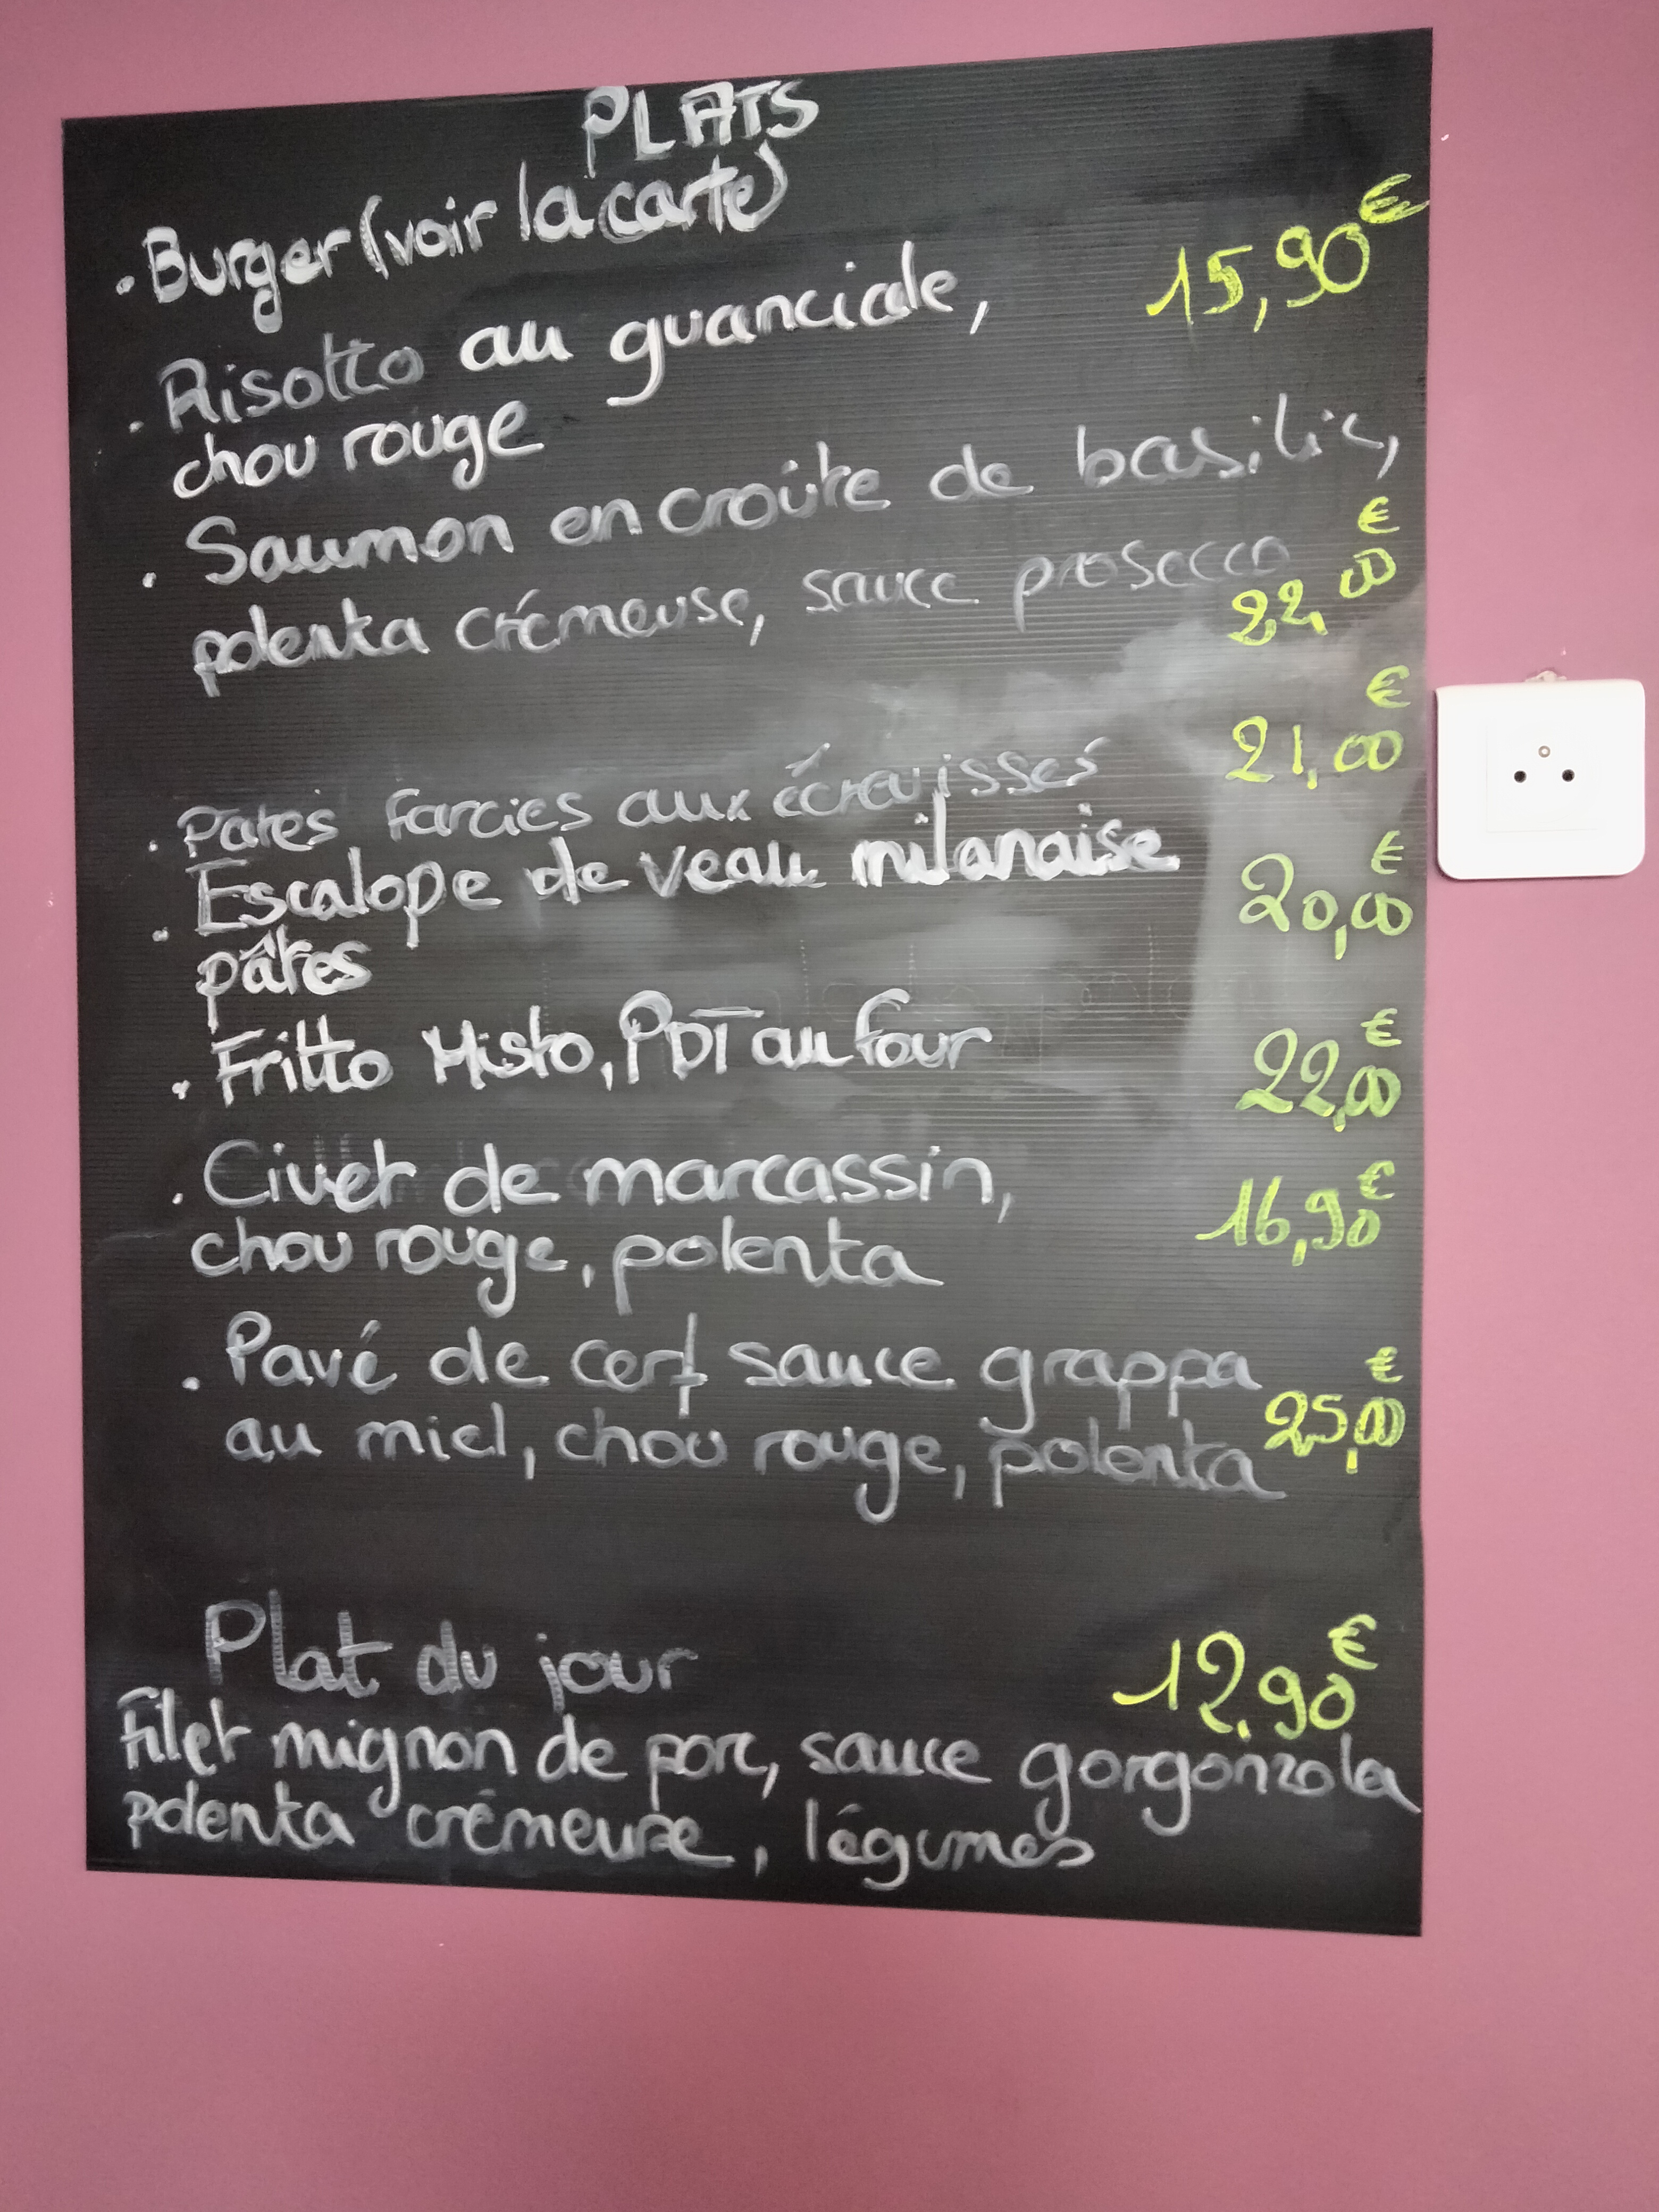 PLATS
. Burger (voir la carte)
. Risotto au guanciale, 15,90€
chou rouge
. Saumon en croûte de basilic,
polenta crémeuse, sauce prosecco 22,00€
. Pates farcies aux écrevisses 21,00€
. Escalope de veau milanaise 20,00€
pâtes
. Fritto Misto, PDT au four 22,00€
. Civet de marcassin, 16,90€
chou rouge, polenta
. Pavé de cerf sauce grappa
au miel, chou rouge, polenta 25,00€
Plat du jour 12,90€
Filet mignon de porc, sauce gorgonzola
polenta crémeuse, légumes